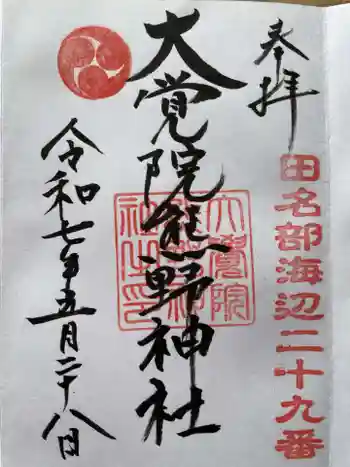 奉拝
田名部海辺二十九番
大覚院熊野神社
令和七年五月二十八日